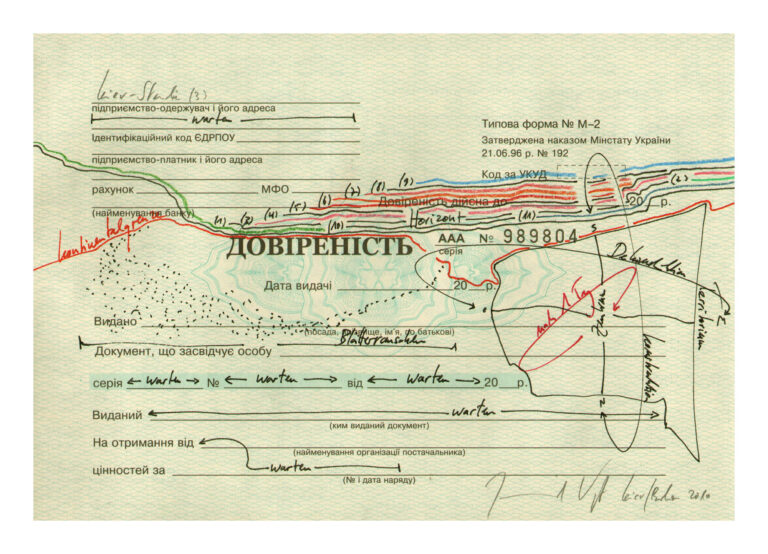 (3)
підприємство-одержувач і його адреса
warten
Ідентифікаційний код ЄДРПОУ
підприємство-платник і його адреса
рахунок МФО
(найменування банку)
Типова форма № М–2
Затверджена наказом Мінстату України
21.06.96 р. № 192
Код за УКУД
Довіреність дійсна до 20 р.
(1) (2) (4) (5) (6) (7) (8) (9)
(10) Horizont (11) (2)
Kontinentalgrenze
ДОВІРЕНІСТЬ
ААА № 989804
серія
S
Дата видачі 20 р.
Видано
(посада, прізвище, ім'я, по батькові)
Документ, що засвідчує особу
серія warten № warten від warten 20 р.
N
Виданий warten
(ким виданий документ)
На отримання від
(найменування організації постачальника)
цінностей за warten
(№ і дата наряду)
2010